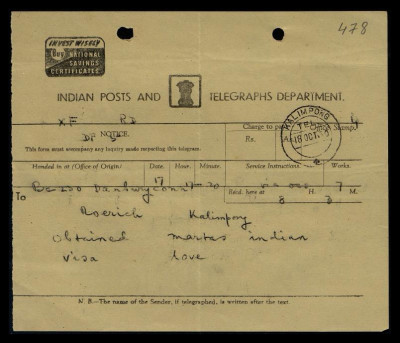 478
INVEST WISELY
Buy NATIONAL
SAVINGS
CERTIFICATES
INDIAN POSTS AND TELEGRAPHS DEPARTMENT.
XF
NOTICE.
This form must accompany any inquiry made respecting this telegram.
Charge to pay
Rs.
KALIMPONG
TEL
18 OCT
Handed in at (Office of Origin). Date. Hour. Minute. Service Instructions. Words.
17 30 7
Recd. here at H. M.
8
To
Roerich Kalimpong
obtained martas indian
visa love
N. B.—The name of the Sender, if telegraphed, is written after the text.